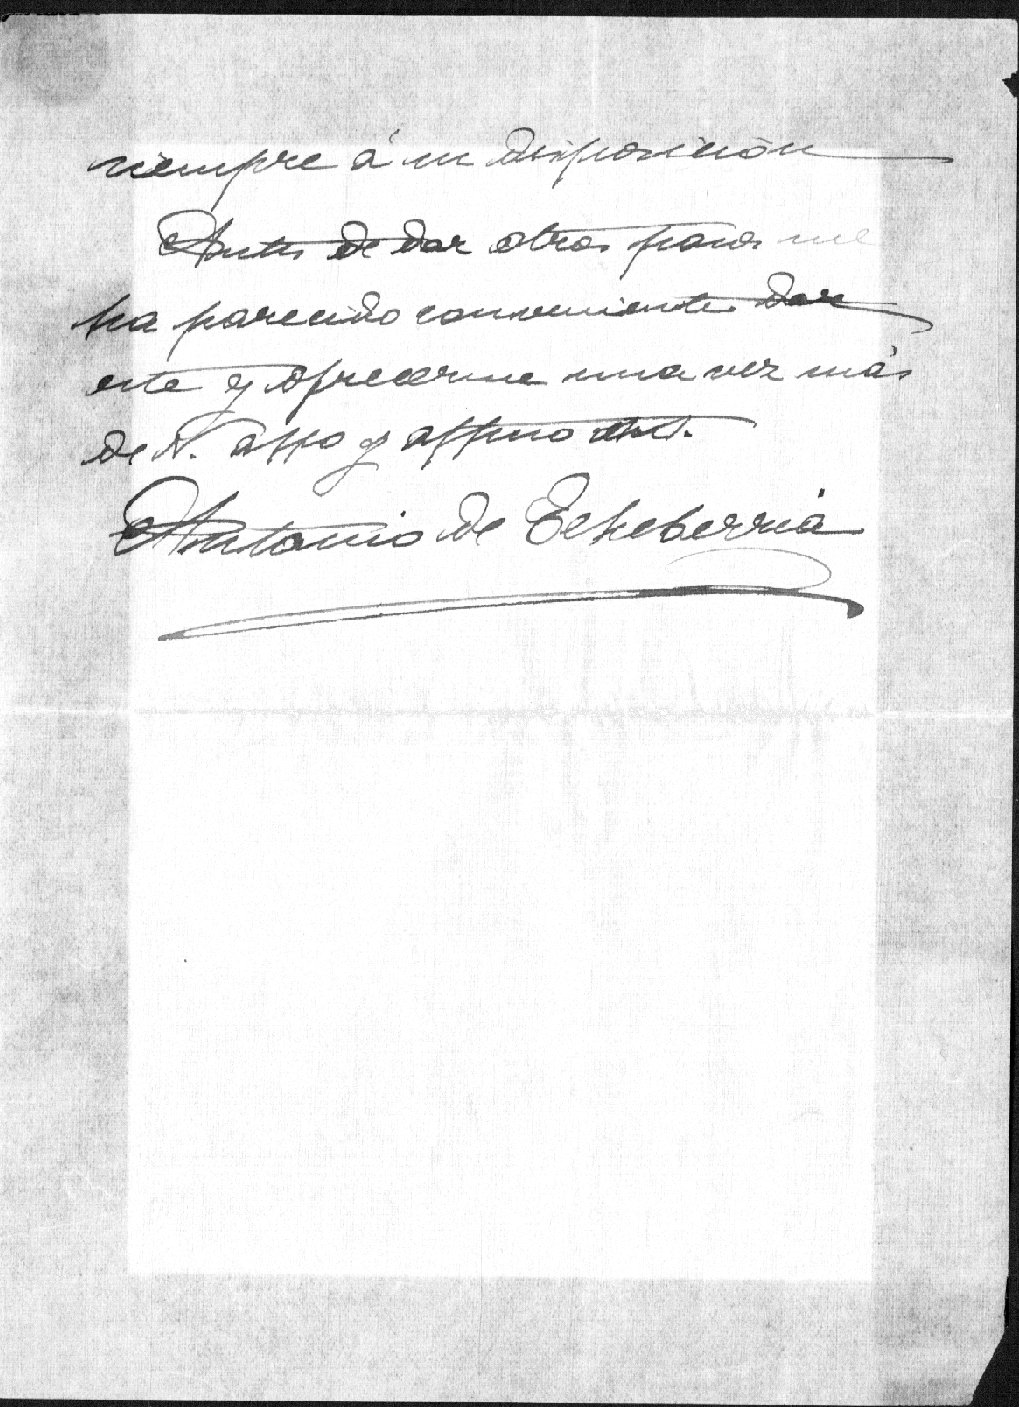 siempre á su disposición
Antes de dar otros pasos me
ha parecido conveniente dar
este y ofrecerme una vez más
de V. affo y affmo
Antonio de Echeberria